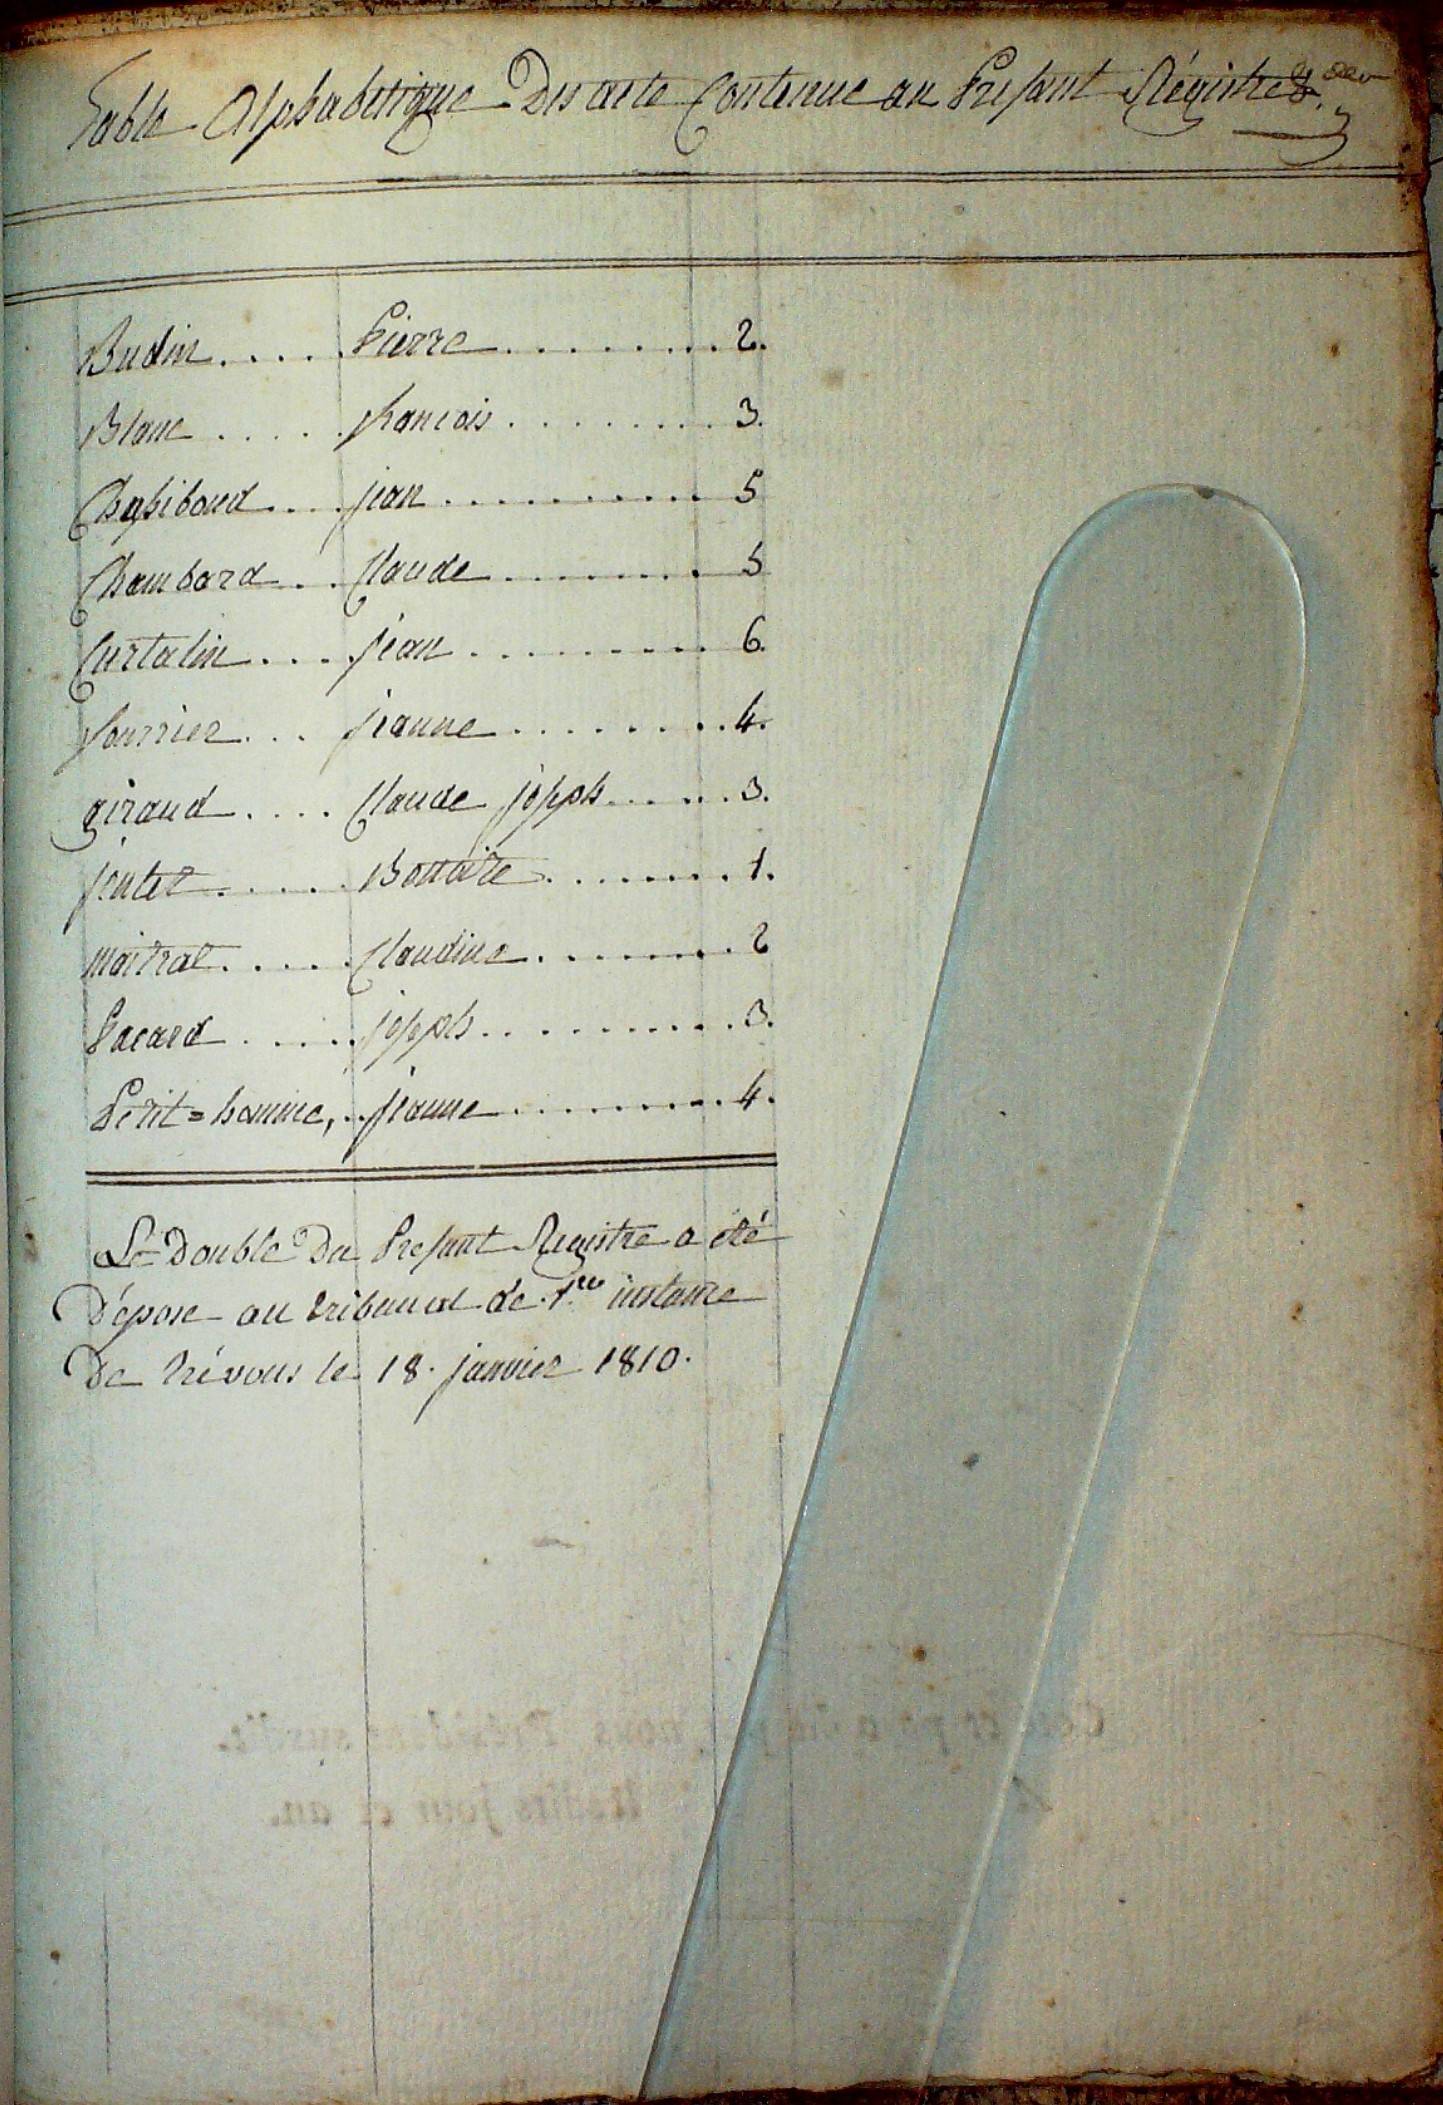 Table Alphabetique Des acte Contenue au Present Régistre
Budin.... Pierre......... 2.
Blanc..... francois......... 3.
Chassiboud.... jean.......... 5
Chambard... Claude......... 5
Curtalin.... jean......... 6.
fourrier... jeanne........ 4.
giraud.... Claude joseph...... 3.
Bottaire....... 1.
maitral..... Claudine........ 2
Pacard..... joseph......... 3.
Petit=homme,.. jeanne......... 4.
Le Double Du Present Registre a été
Déposé au tribunal de 1.re instance
De Trévoux le 18. janvier 1810.
nous Président susdit.
lesdits jour et an.